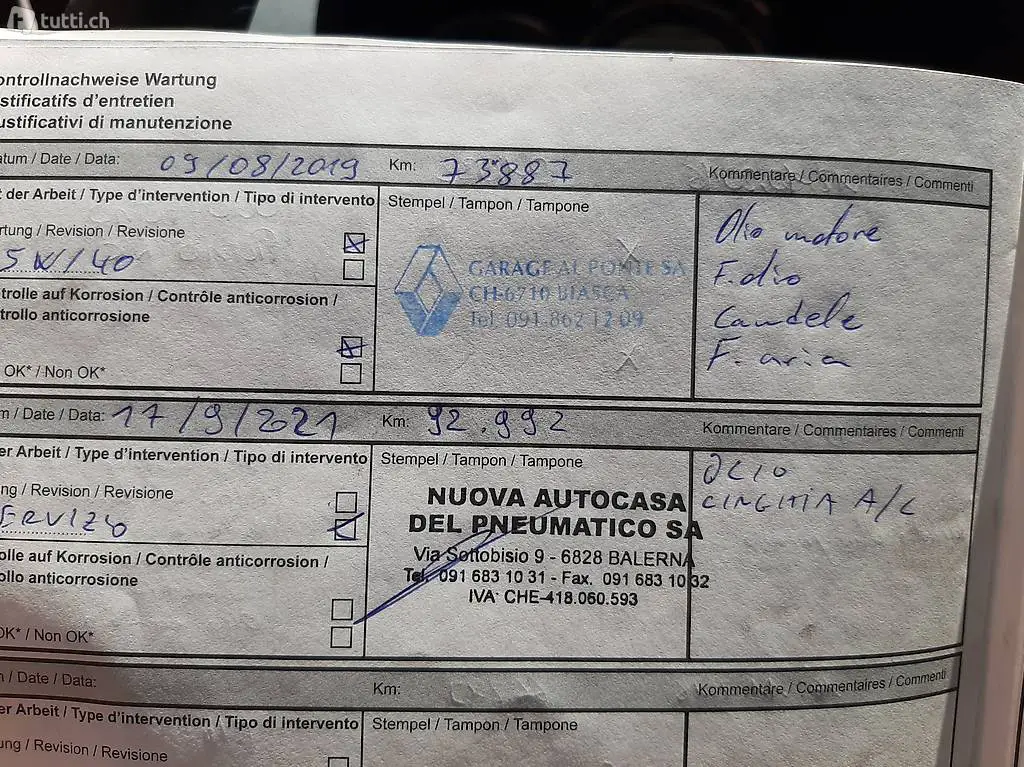 tutti.ch
ontrollnachweise Wartung
stificatifs d'entretien
ustificativi di manutenzione
atum / Date / Data: 09/08/2019 Km: 73'887 Kommentare / Commentaires / Commenti
t der Arbeit / Type d'intervention / Tipo di intervento
Stempel / Tampon / Tampone
rtung / Revision / Revisione
5W/40
trolle auf Korrosion / Contrôle anticorrosion /
trollo anticorrosione
OK* / Non OK*
GARAGE AL PONTE SA
CH-6710 BIASCA
Tel. 091.862 12 09
Olio motore
F. olio
Candele
F. aria
m / Date / Data: 17/9/2021 Km: 92.992 Kommentare / Commentaires / Commenti
er Arbeit / Type d'intervention / Tipo di intervento
Stempel / Tampon / Tampone
ng / Revision / Revisione
ERVIZO
olle auf Korrosion / Contrôle anticorrosion /
ollo anticorrosione
OK* / Non OK*
NUOVA AUTOCASA
DEL PNEUMATICO SA
Via Sottobisio 9 - 6828 BALERNA
Tel. 091 683 10 31 - Fax. 091 683 10 32
IVA: CHE-418.060.593
OLIO
CINGHIA A/C
n / Date / Data: Km: Kommentare / Commentaires / Commenti
er Arbeit / Type d'intervention / Tipo di intervento
Stempel / Tampon / Tampone
ung / Revision / Revisione